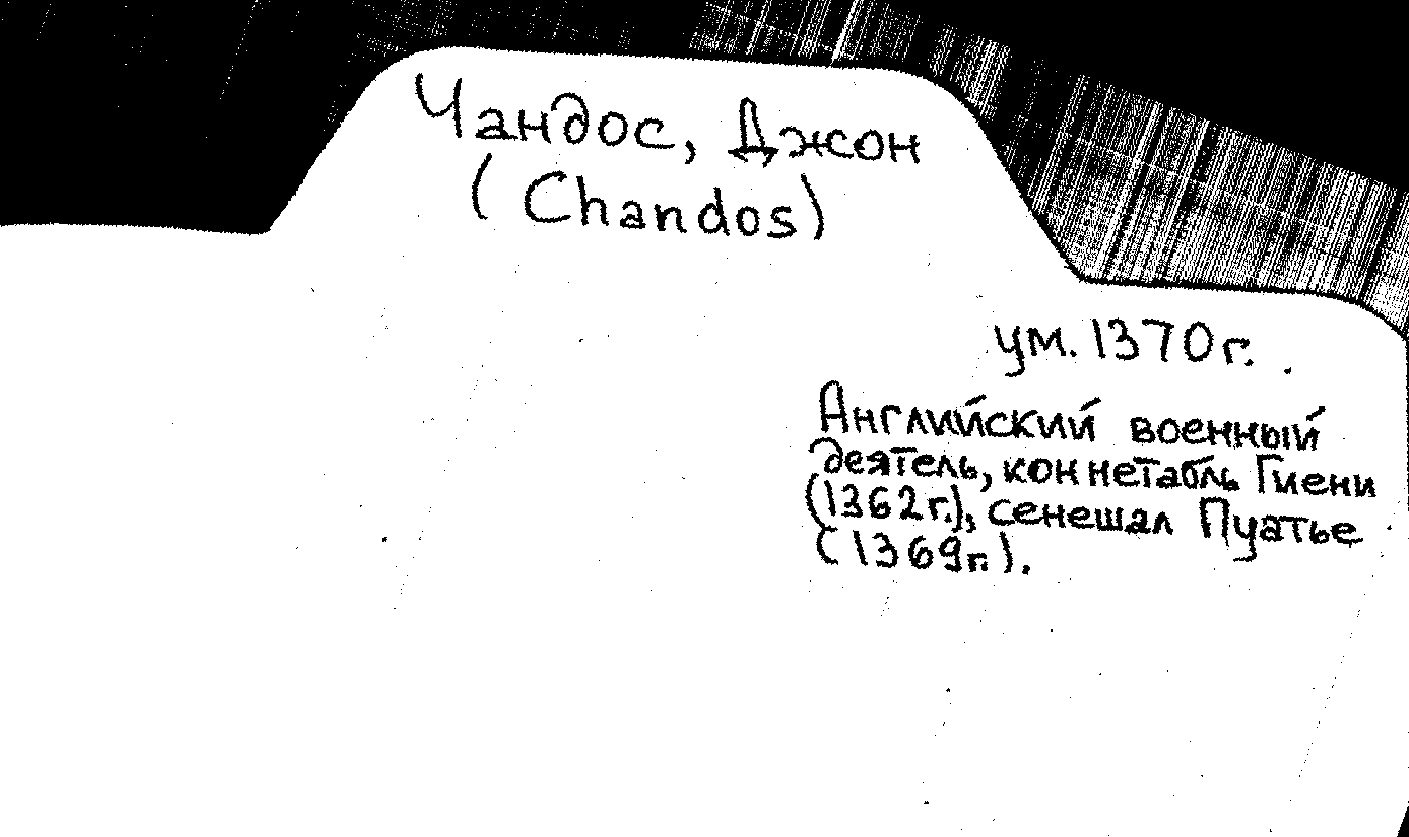 Чандос, Джон
(Chandos)
ум. 1370 г.
Английский военный
деятель, коннетабль Гиени
(1362 г.), сенешал Пуатье
(1369 г.).